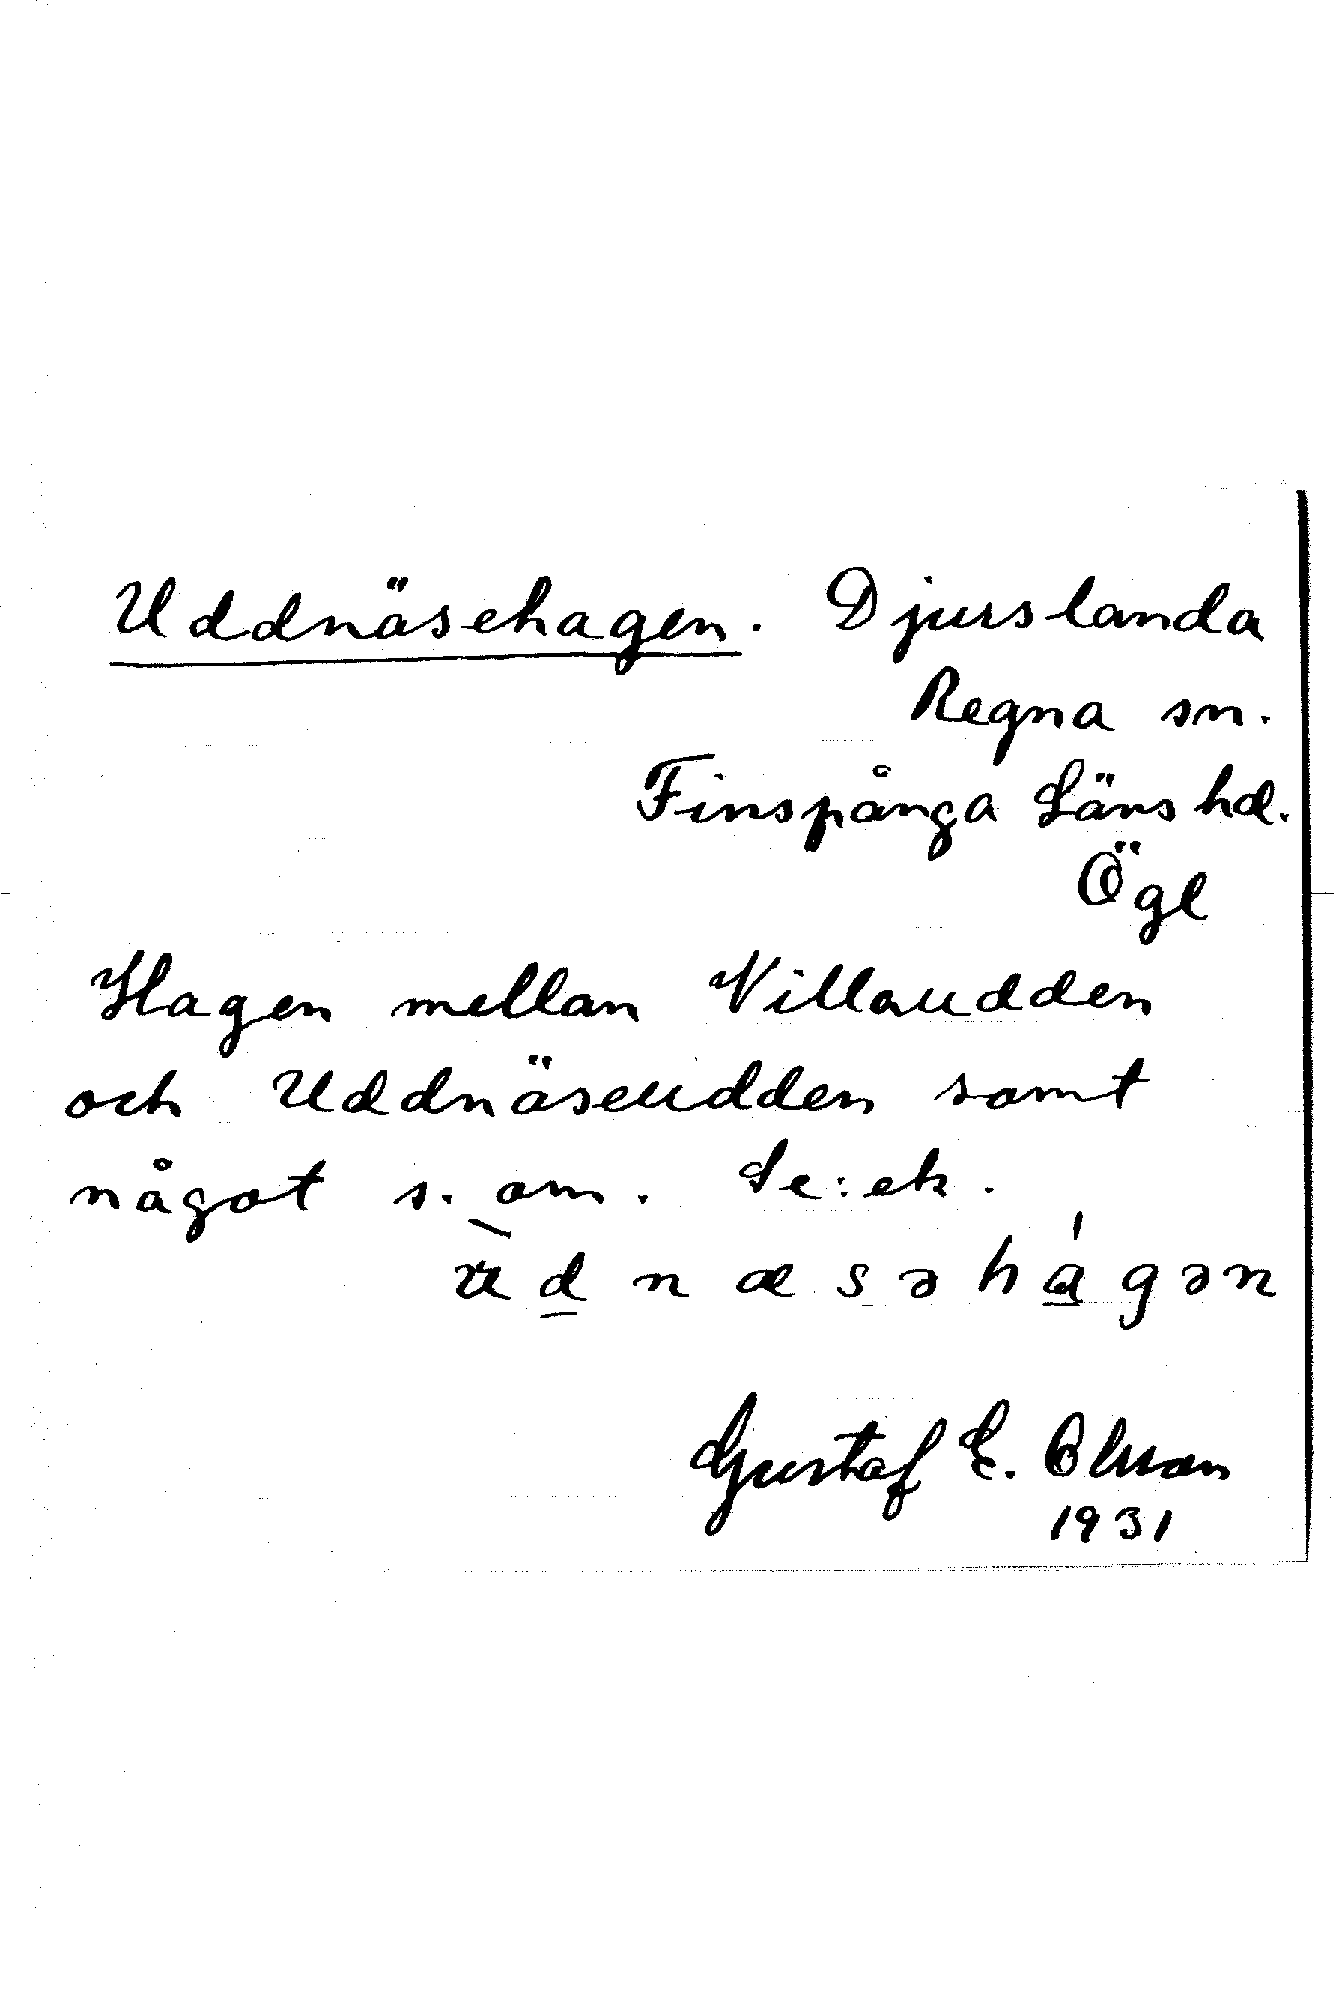 Uddnäsehagen. Djurslanda
Regna sn.
Finspånga Läns hd.
Ögl
Hagen mellan Villaudden
och Uddnäseudden samt
något s. om. Le:ek.
ùdnæsəhágən
Gustaf E. Olsson
1931